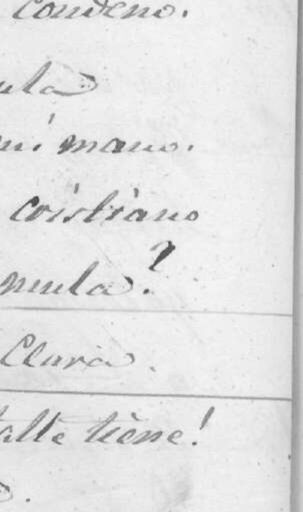 condeno.
ula
mi mano.
cristiano
mula?
Clara.
talle tiene!